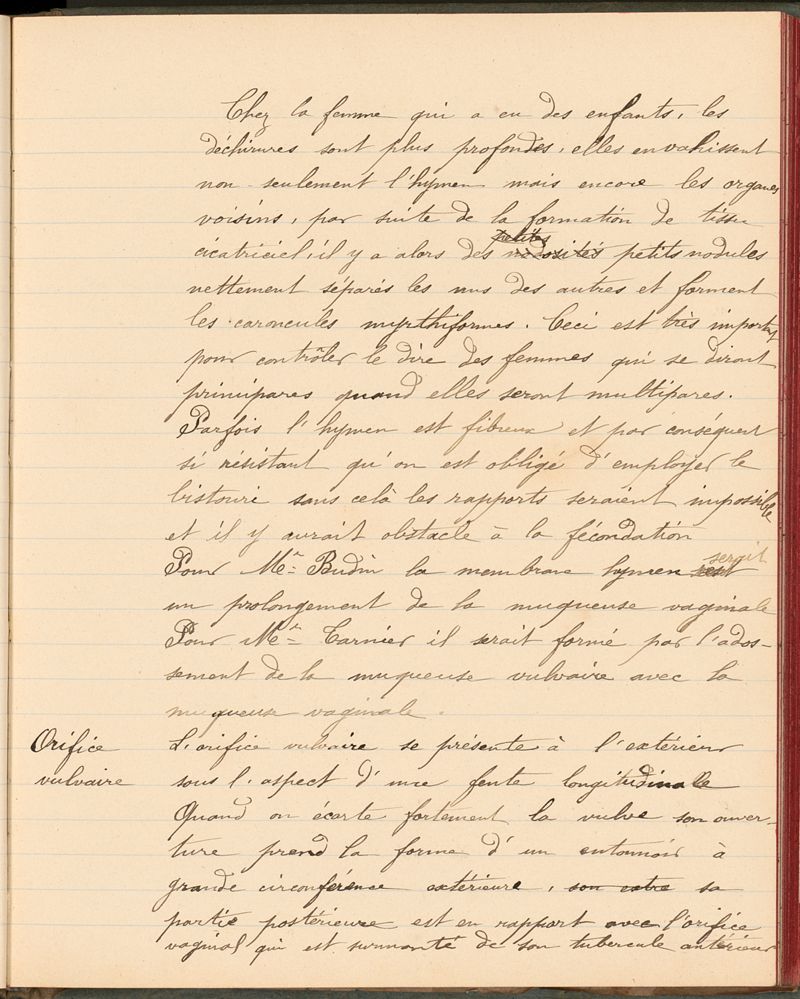 Chez la femme qui a eu des enfants, les
déchirures sont plus profondes, elles envahissent
non seulement l'hymen mais encore les organes
voisins, par suite de la formation de tissu
petites
cicatriciel, il y a alors des nodosités petits nodules
nettement séparés les uns des autres et forment
les caroncules myrthiformes. Ceci est très important
pour contrôler le dire des femmes qui se diront
primipares quand elles seront multipares.
Parfois l'hymen est fibreux et par conséquent
si résistant qu'on est obligé d'employer le
bistouri sans celà les rapports seraient impossible
et il y aurait obstacle à la fécondation
serait
Pour Mr Budin la membrane hymen est
un prolongement de la muqueuse vaginale
Pour Mr Tarnier il serait formé par l'ados-
sement de la muqueuse vulvaire avec la
muqueuse vaginale.
Orifice vulvaire
L'orifice vulvaire se présente à l'extérieur
sous l'aspect d'une fente longitudinale
Quand on écarte fortement la vulve son ouver-
ture prend la forme d'un entonnoir à
grande circonférence extérieure, son extre sa
partie postérieure est en rapport avec l'orifice
vaginal qui est surmonté de son tubercule antérieur